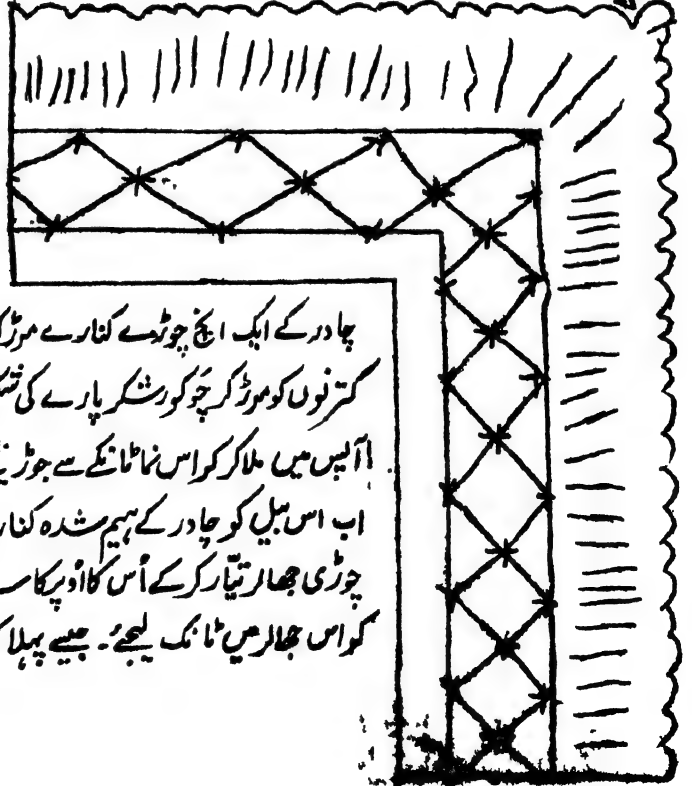 چادر کے ایک انچ چوڑے کنارے موڑ
کترنوں کو موڑ کر چَوکور شکر پارے کی
آپس میں ملا کر کراس نما ٹانکے سے جوڑ
اب اس بیل کو چادر کے ہیم شدہ کنا
چوڑی جھالر تیّار کر کے اُس کا اُوپر کا
کو اس جھالر میں ٹانک لیجئے۔ جیسے پہلا